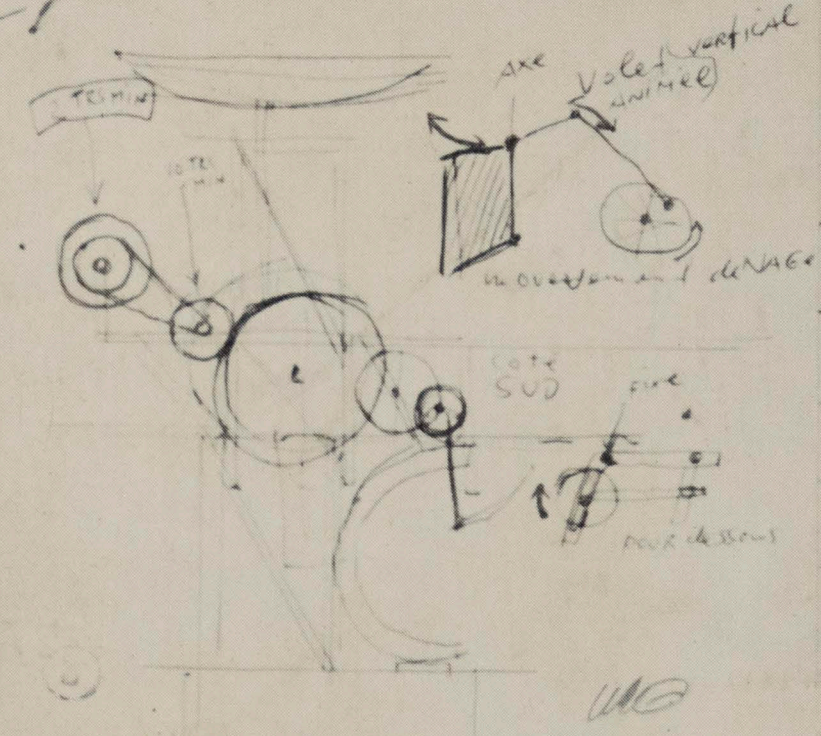 TRS MIN
TRS
MIN
AXE
Volet vertical
ANIMEE
mouvement de NAGE
COTÉ
SUD
FIXE
POUR dessous